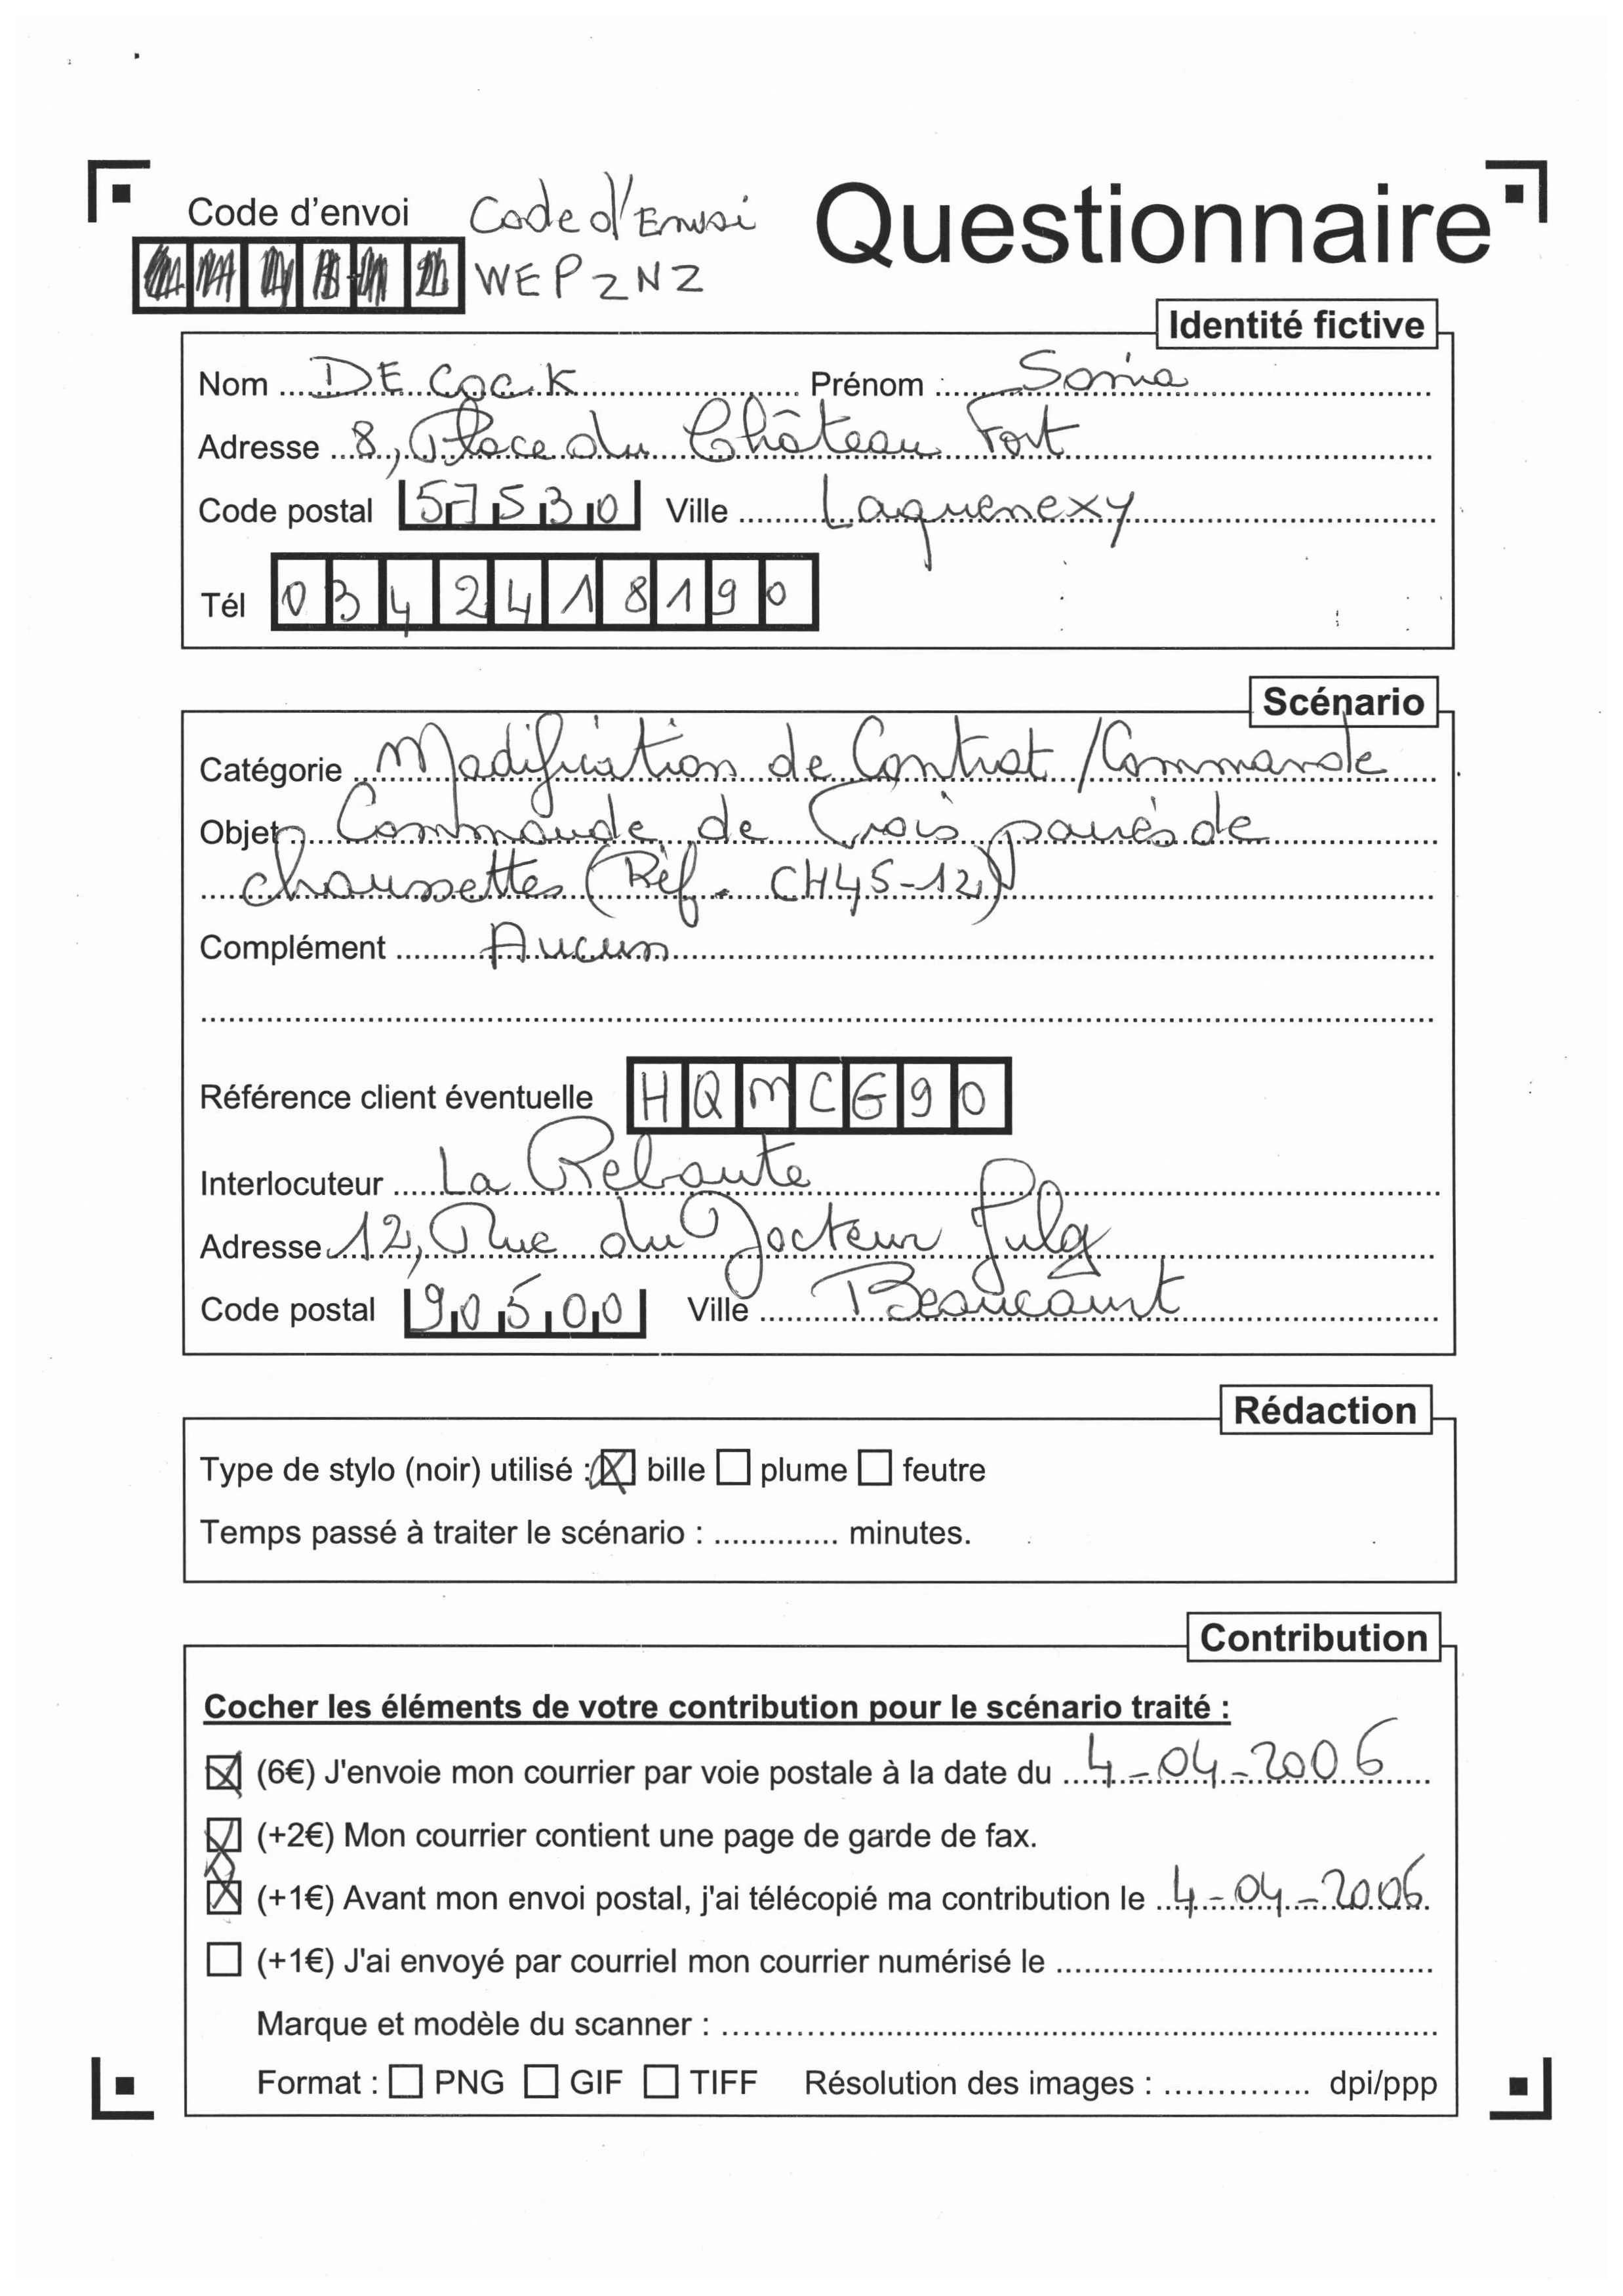 Code d'envoi Code d'Envoi Questionnaire
WEPZNZ
Identité fictive
Nom DE COCK Prénom : Sonia
Adresse 8, Place du Château Fort
Code postal 57530 Ville Laquenexy
Tél 0342418190
Scénario
Catégorie Modification de Contrat / Commande
Objet Commande de Trois paires de
chaussettes (Réf. CH45-12)
Complément Aucun
Référence client éventuelle HQMCG90
Interlocuteur La Reboute
Adresse 12, Rue du Docteur
Code postal 90500 Ville Beaucourt
Rédaction
Type de stylo (noir) utilisé : bille plume feutre
Temps passé à traiter le scénario : .............. minutes.
Contribution
Cocher les éléments de votre contribution pour le scénario traité :
(6€) J'envoie mon courrier par voie postale à la date du 4-04-2006
(+2€) Mon courrier contient une page de garde de fax.
(+1€) Avant mon envoi postal, j'ai télécopié ma contribution le 4-04-2006
(+1€) J'ai envoyé par courriel mon courrier numérisé le
Marque et modèle du scanner :
Format : PNG GIF TIFF Résolution des images : .............. dpi/ppp